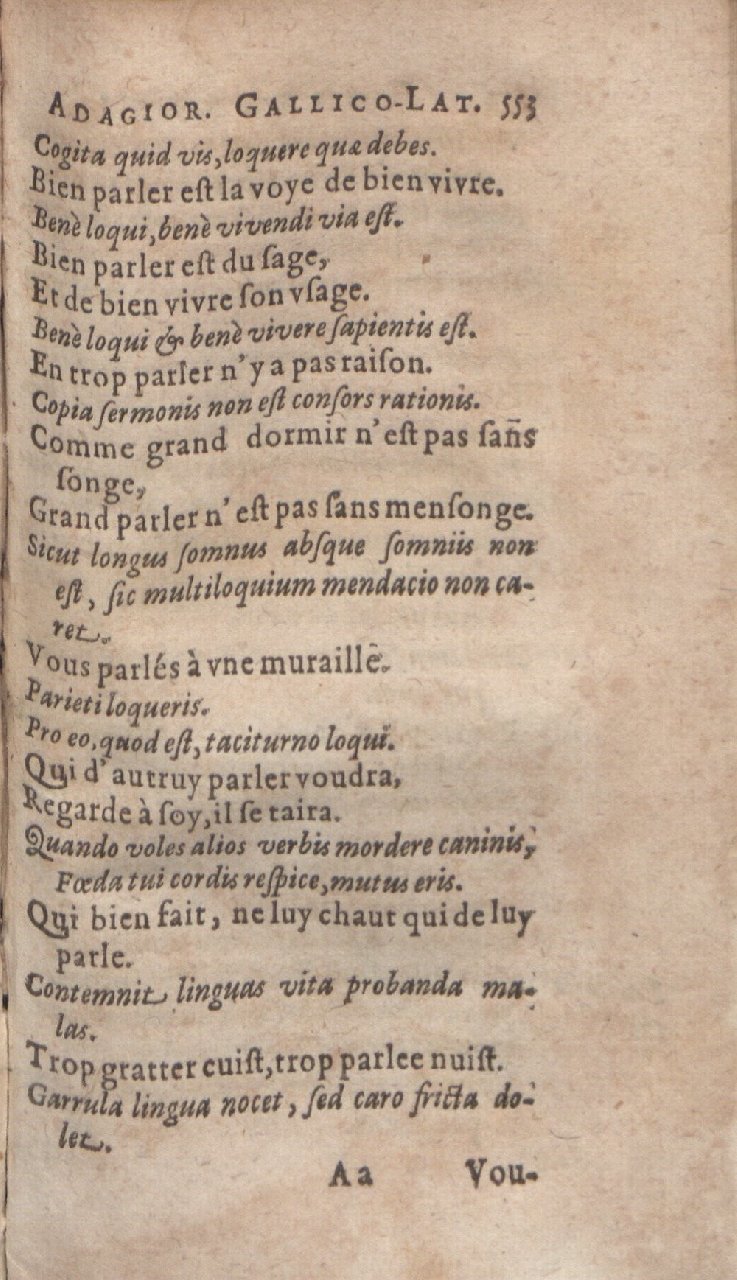 ADAGIOR. GALLICO-LAT. 553
Cogita quid vis, loquere quæ debes.
Bien parler eſt la voye de bien vivre.
Benè loqui, benè vivendi via eſt.
Bien parler eſt du ſage,
Et de bien vivre ſon vſage.
Benè loqui & benè vivere ſapientis eſt.
En trop parler n'y a pas raiſon.
Copia ſermonis non eſt conſors rationis.
Comme grand dormir n'eſt pas ſans
ſonge,
Grand parler n'eſt pas ſans menſonge.
Sicut longus ſomnus abſque ſomniis non
eſt, ſic multiloquium mendacio non ca-
ret.
Vous parlés à vne muraille.
Parieti loqueris.
Pro eo, quod eſt, taciturno loqui.
Qui d'autruy parler voudra,
Regarde à ſoy, il ſe taira.
Quando voles alios verbis mordere caninis,
Fœda tui cordis reſpice, mutus eris.
Qui bien fait, ne luy chaut qui de luy
parle.
Contemnit linguas vita probanda ma-
las.
Trop gratter cuiſt, trop parlee nuiſt.
Garrula lingua nocet, ſed caro fricta do-
let.
Aa Vou-